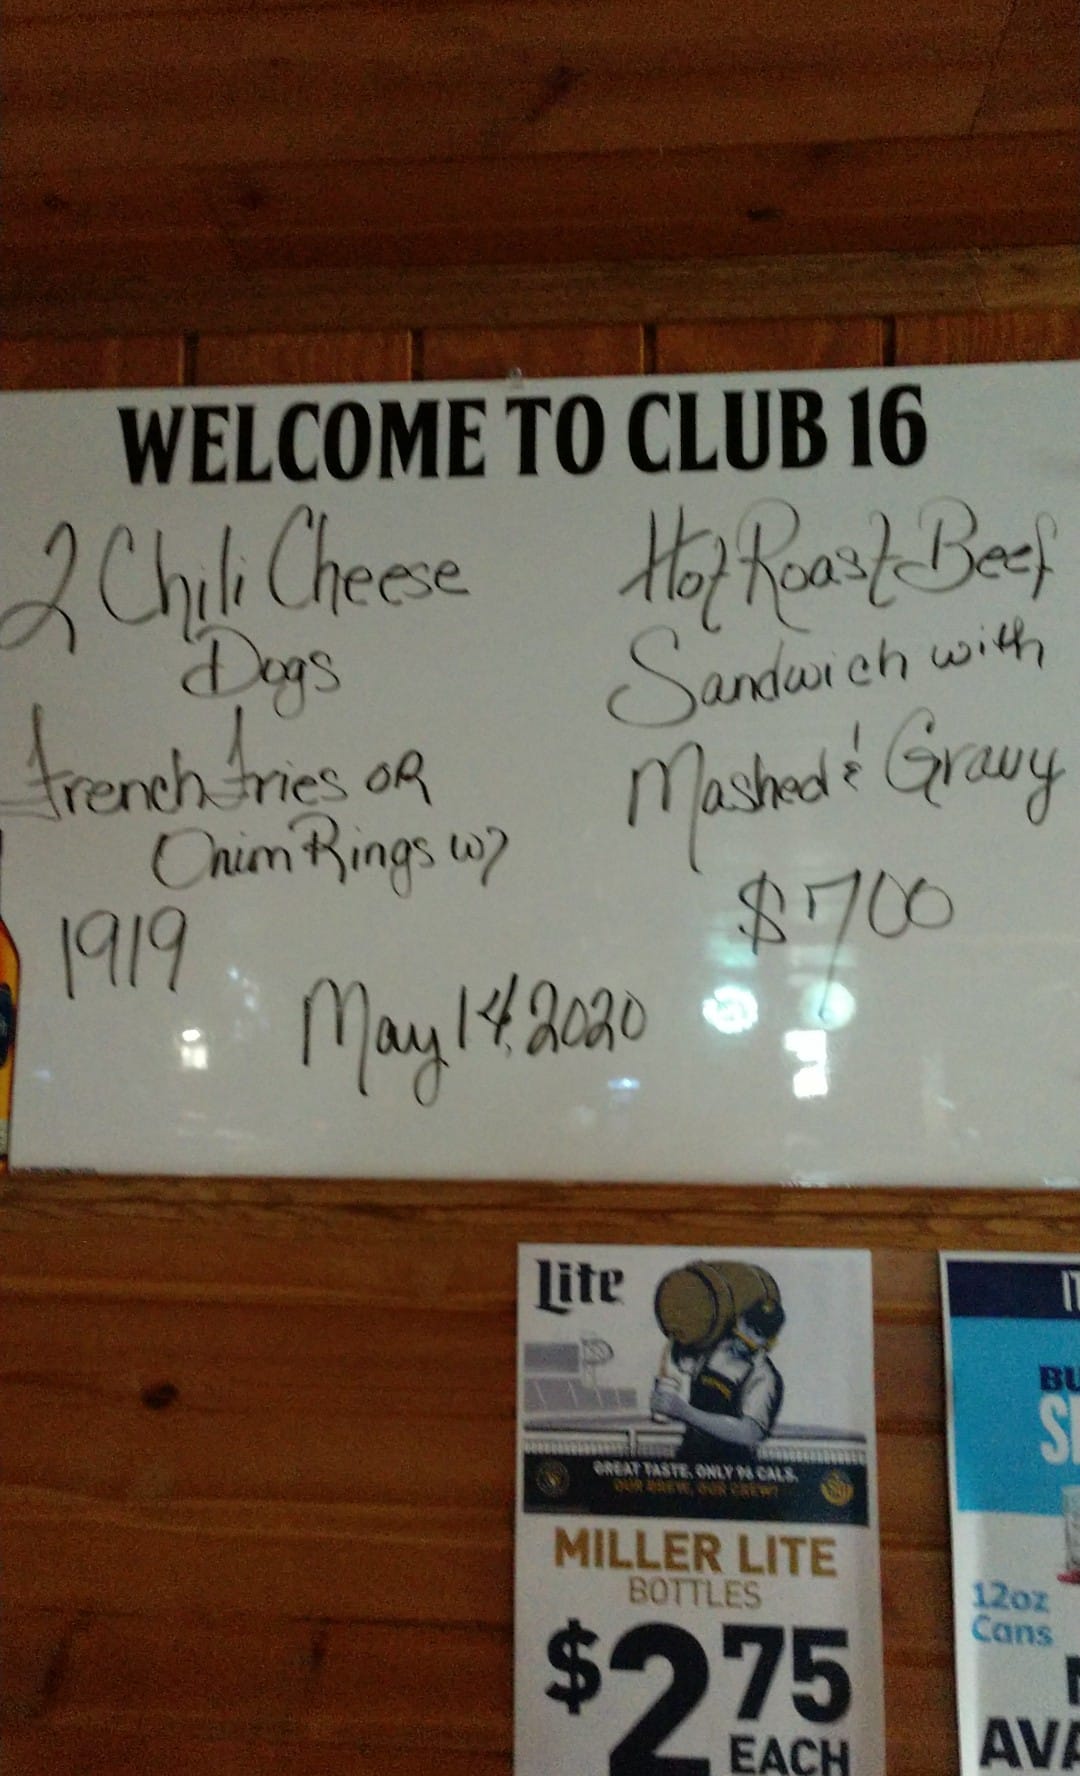 WELCOME TO CLUB 16
2 Chili Cheese
Dogs
French Fries OR
Onion Rings w/
1919
Hot Roast Beef
Sandwich with
Mashed & Gravy
$7.00
May 14, 2020
Lite
GREAT TASTE. ONLY 96 CALS.
OUR BREW, OUR CREW!
MILLER LITE
BOTTLES
$2 75
EACH
IT
BU
12oz
Cans
AVA